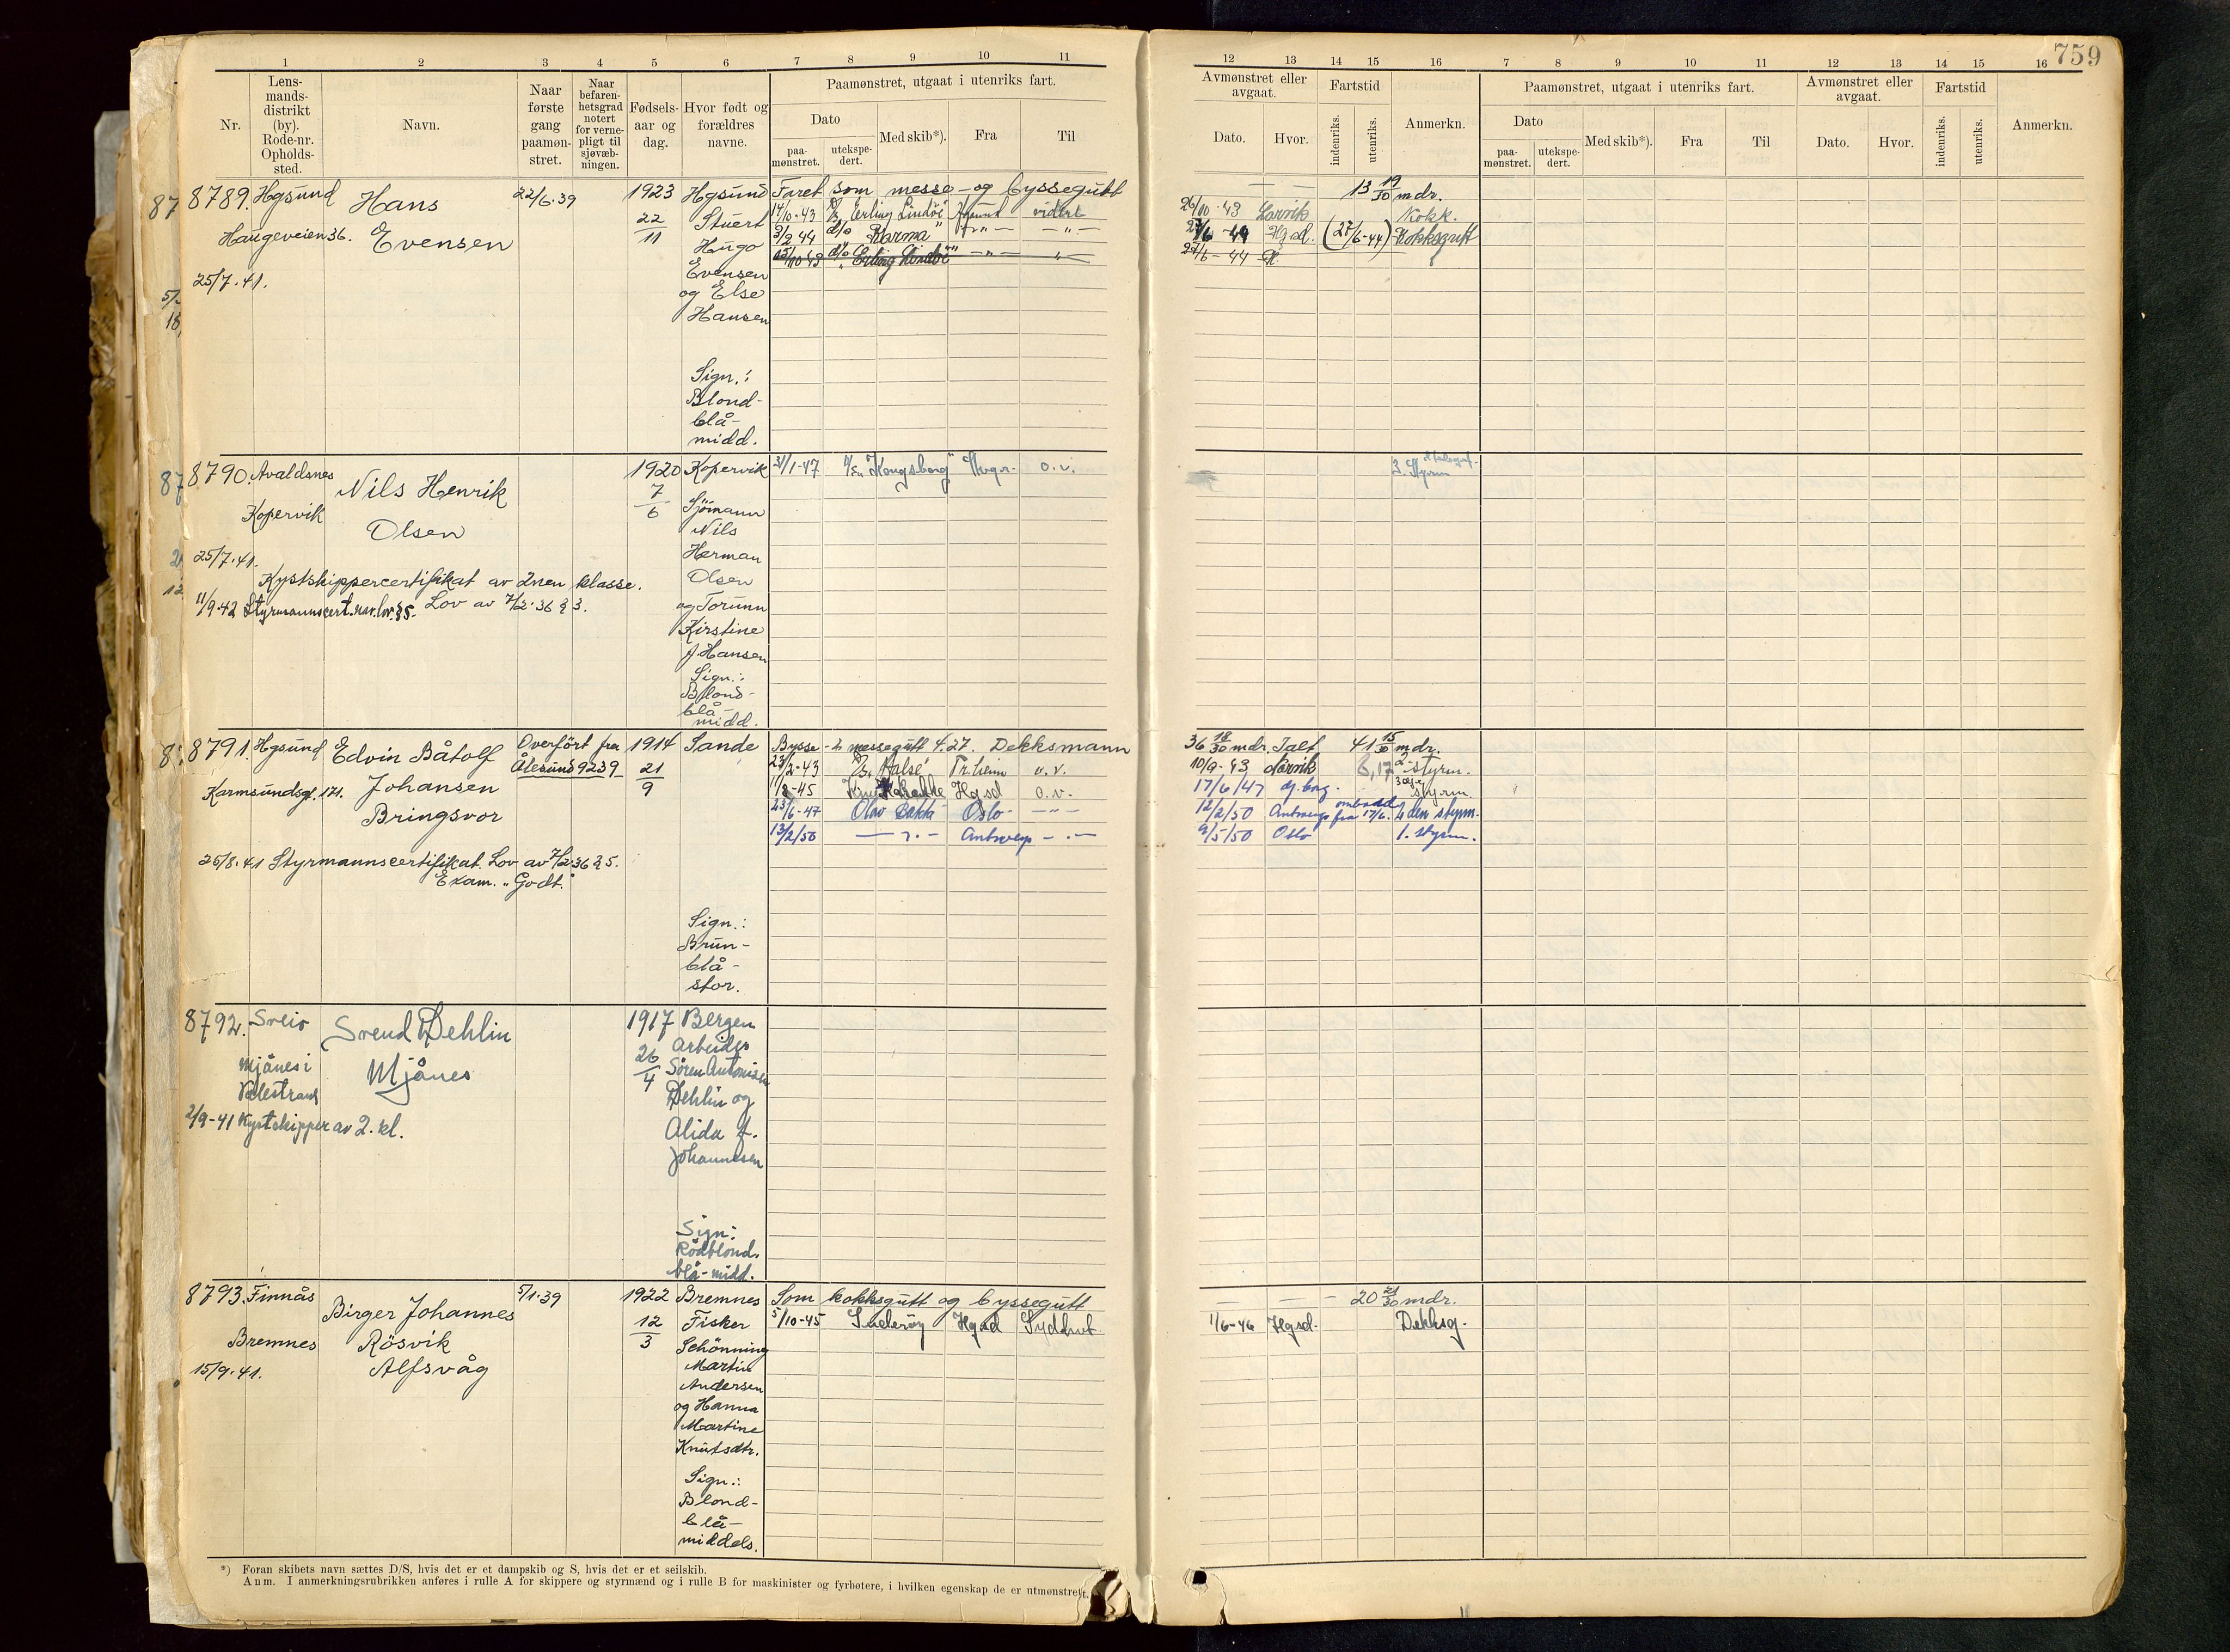 759
1 2 3 4 5 6 7 8 9 10 11
12 13 14 15 16 7 8 9 10 11 12 13 14 15 16
Nr.
Lens-
mands-
distrikt
(by).
Rode-nr.
Opholds-
sted.
Navn.
Naar
første
gang
paamøn-
stret.
Naar
befaren-
hetsgrad
notert
for verne-
pligt til
sjøvæb-
ningen.
Fødsels-
aar og
dag.
Hvor født og
forældres
navne.
Paamønstret, utgaat i utenriks fart.
Dato
paa-
mønstret.
utekspe-
dert.
Med skib*).
Fra
Til
Avmønstret eller
avgaat.
Dato.
Hvor.
Fartstid
indenriks.
utenriks.
Anmerkn.
Paamønstret, utgaat i utenriks fart.
Dato
paa-
mønstret.
utekspe-
dert.
Med skib*).
Fra
Til
Avmønstret eller
avgaat.
Dato.
Hvor.
Fartstid
indenriks.
utenriks.
Anmerkn.
8789. Hgsund Hans 22/6.39 1923 Hgsund Faret som messe- og byssegutt — — 13 19/30 mdr.
Haugeveien 36. Evensen 22/11 Stuert 14/10-43 Erling Lindöe Hgsund videre 26/10-43 Larvik Kokk.
Hugo 3/2 44 d/s Karma" — " — — " — 27/6-44 Hgsd. (27/6-44) Kokksgutt
Evensen d/s Erling Lindöe" — " — 27/6-44
25/7.41.
og Else
Hansen
Sign.:
Blond-
blå-
midd.
8790. Avaldsnes Nils Henrik 1920 Kopervik 31/1-47 "Kongsberg" o.v. 3. Styrm
Kopervik Olsen 7/6 Sjömann
Nils
25/7.41. Herman
Kystskippercertifikat av 2nen klasse. Olsen
11/9.42 Styrmannscert. nav. lov. §5. Lov av 7/2.36 § 3. og Torunn
Kirstine
J. Hansen
Sign.:
Blond-
blå-
midd.
8791. Hgsund Edvin Båtolf Overfört fra 1914 Sande Bysse- & messegutt 4.27. Dekksmann 36 18/30 mdr. Ialt 41 15/30 mdr.
Ålesund 9239 21/9 23/2-43 Tr.heim o.v. 10/9-43 Narvik 2. styrm.
Karmsundsgt. 171. Johansen 11/8-45 Hgsd o.v. 17/6/47 styrm.
Bringsvor 23/6-47 Olav Bakke Oslo — " — 12/2/50 Antwerp ombord fra 17/6. 4 den styrm.
13/2/50 — " — Antwerp — " — 9/5/50 Oslo 1. styrm.
25/8.41 Styrmannscertifikat. Lov av 7/2.36 § 5.
Exam. „Godt."
Sign.:
Brun-
blå-
stor.
8792. Sveio Svend Dehlin 1917 Bergen
Mjånes i Mjånes 26/4 Arbeider
Valestrand Sören Antonisen
Dehlin og
2/9-41 Kystskipper av 2. kl. Alida
Johannesen
Sign:
Rödblond.
blå-midd.
8793. Finnås Birger Johannes 5/1.39 1922 Bremnes Som kokksgutt og byssegutt — — — 20 21/30 mdr.
Bremnes Rösvik 12/3 Fisker 5/10-45 Suderöy Hgsd Sydhvet 1/6-46 Hgsd. Dekksg.
15/9.41. Alfsvåg Schönning
Martin
Andersen
og Hanna
Martine
Knutsdtr.
Sign.:
Blond-
blå-
middels.
*) Foran skibets navn sættes D/S, hvis det er et dampskib og S, hvis det er et seilskib.
Anm. I anmerkningsrubrikken anføres i rulle A for skippere og styrmænd og i rulle B for maskinister og fyrbøtere, i hvilken egenskap de er utmønstret.